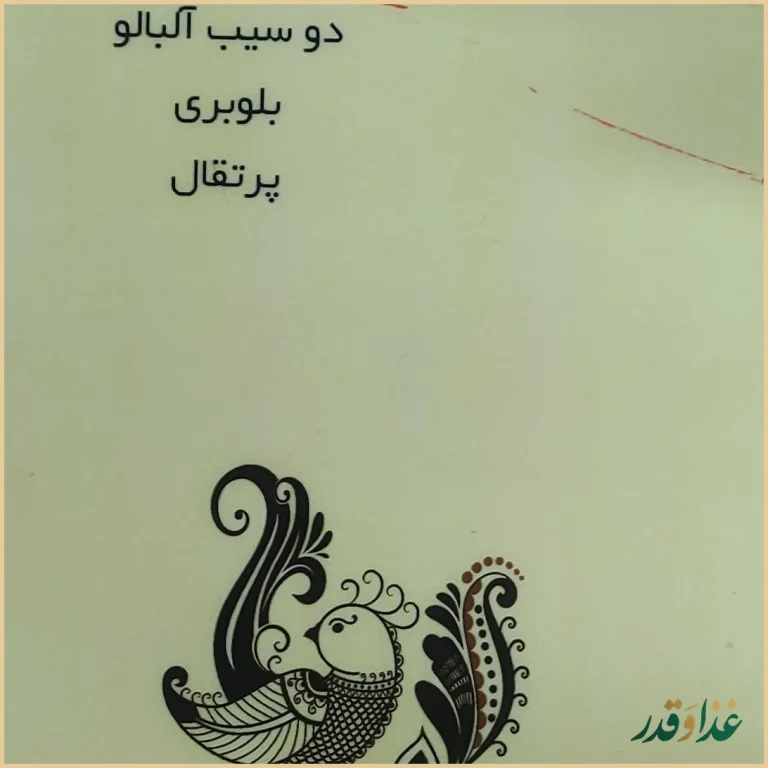 دو سیب آلبالو
بلوبری
پرتقال
غذا و قدر